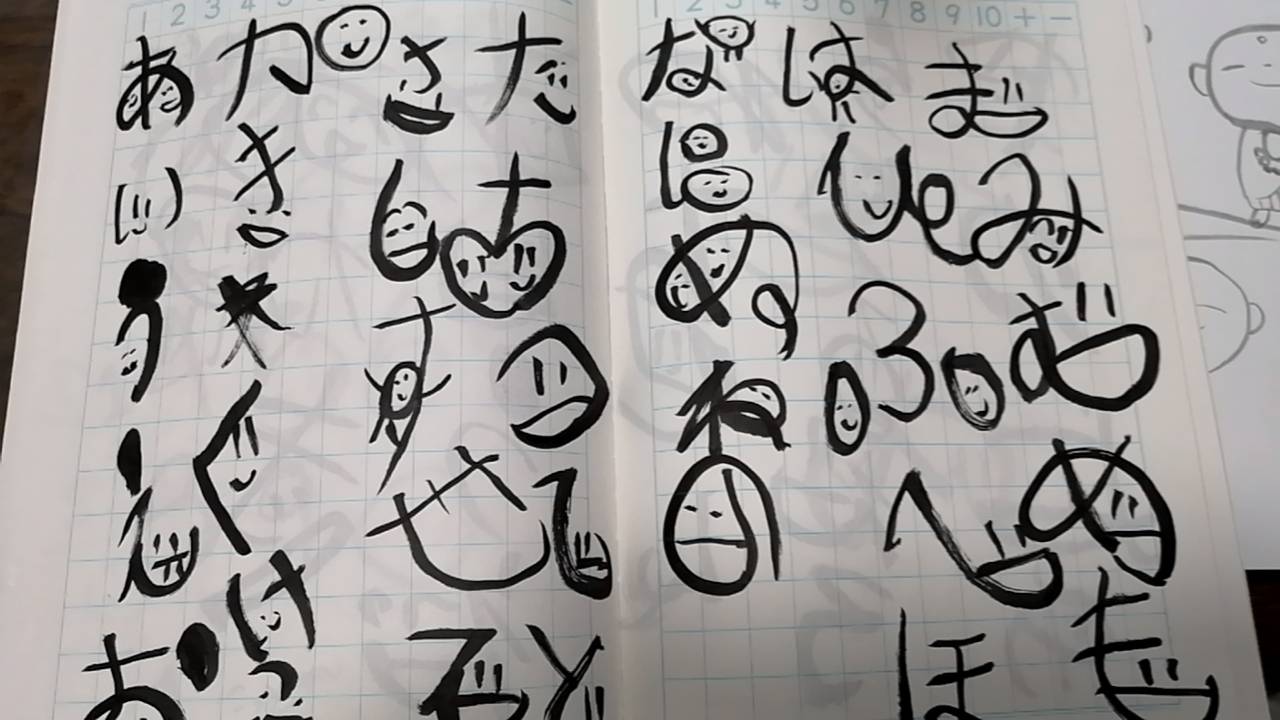 1 2 3 4 5
1 2 3 4 5 6 7 8 9 10 + −
あ
い
う
え
お
か
き
く
け
こ
さ
し
す
せ
そ
た
ち
つ
て
と
な
に
ぬ
ね
の
は
ひ
ふ
へ
ほ
ま
み
む
め
も